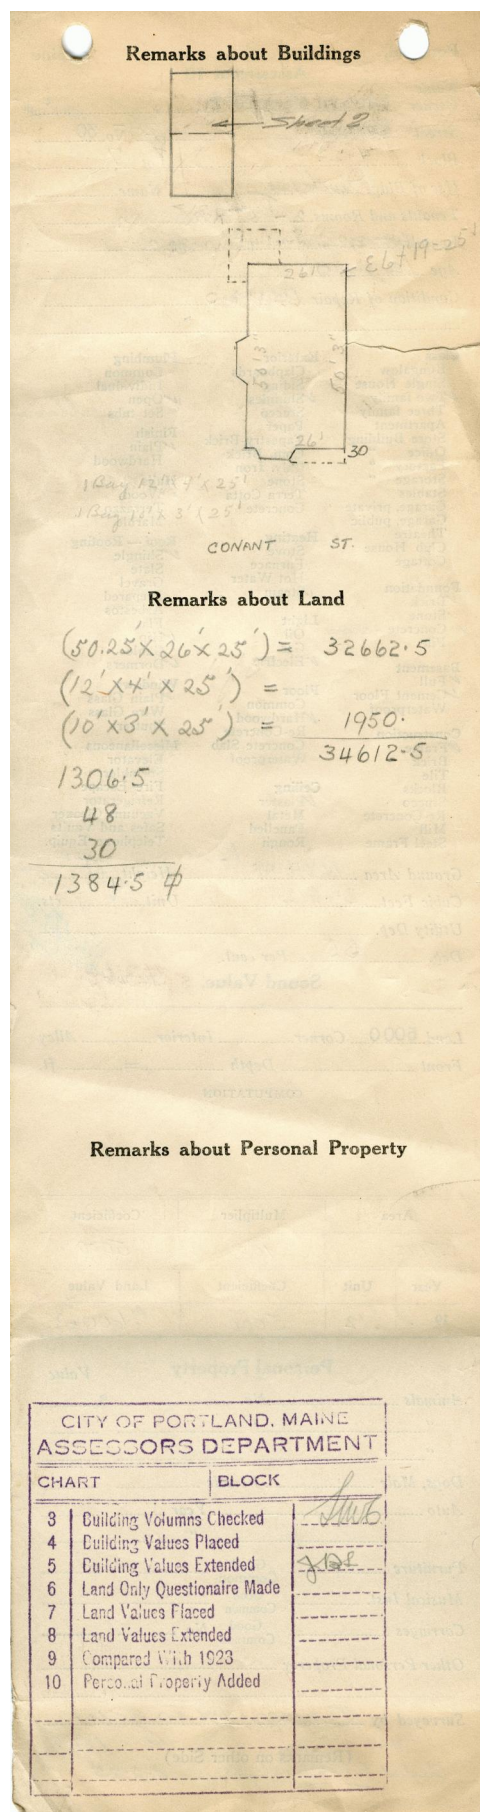 Remarks about Buildings
Sheet 2
26' × £6+19=25'
50'3"
50'3"
26'
30
1 Bay 12' 4' x 25'
1 Bay 10' x 3' x 25'
CONANT ST.
Remarks about Land
(50.25' x 26' x 25') = 32662.5
(12' x 4' x 25') =
(10' x 3' x 25') = 1950.
34612.5
1306.5
48
30
1384.5
Remarks about Personal Property
CITY OF PORTLAND, MAINE
ASSESSORS DEPARTMENT
CHART BLOCK
3 Building Volumns Checked
4 Building Values Placed
5 Building Values Extended
6 Land Only Questionaire Made
7 Land Values Placed
8 Land Values Extended
9 Compared With 1923
10 Personal Property Added